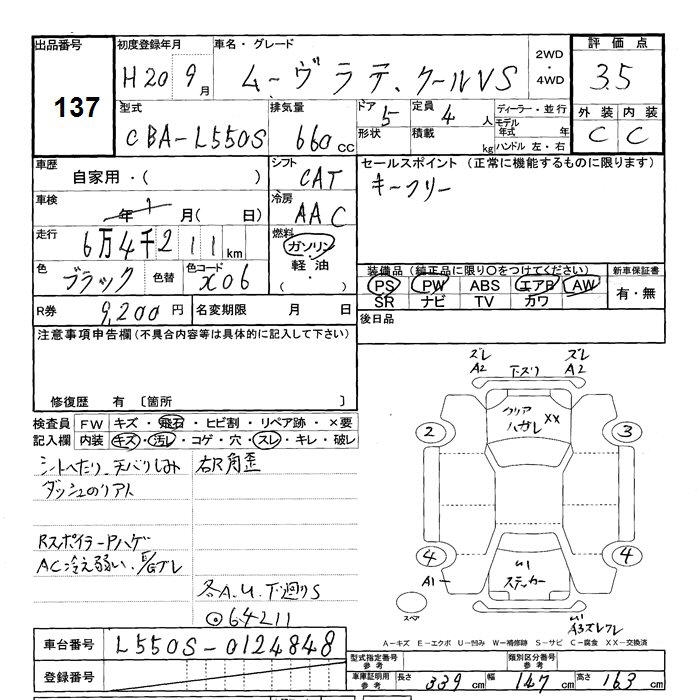 出品番号
137
初度登録年月
H20 9月
車名・グレード
ムーヴラテ、クールVS
2WD
・
4WD
評価点
3.5
型式
CBA-L550S
排気量
660 cc
ドア 5
形状
定員 4 人
積載 kg
ディーラー・並行
モデル年式 年
ハンドル 左・右
外装 内装
C C
車歴
自家用・( )
シフト
CAT
車検
年 月( 日)
冷房
AAC
走行
6万4千211 km
燃料
ガソリン
軽油
・
( )
色
ブラック
色替
色コード
X06
R券
9,200円
名変期限 月 日
セールスポイント (正常に機能するものに限ります)
キーフリー
装備品 (純正品に限り○をつけてください)
PS PW ABS エアB AW
SR ナビ TV カワ
新車保証書
有・無
後日品
注意事項申告欄(不具合内容等は具体的に記入して下さい)
修復歴 有 〔箇所 〕
検査員記入欄
FW キズ・飛石・ヒビ割・リペア跡・×要
内装 キズ・汚レ・コゲ・穴・スレ・キレ・破レ
シートへたり、天バリしみ
ダッシュのリアト
RスポイラーPハゲ
AC冷え弱い、E/Gブレ
右R角歪
各A.U.下廻りS
◎64211
ズレ
A2
下ズリ
ズレ
A2
クリア
ハガレ
XX
2 3
4 4
A1
ステッカー
スペア
A3ズレワレ
A-キズ E-エクボ U-凹み W-補修跡 S-サビ C-腐食 XX-交換済
車台番号
L550S-0124848
登録番号
型式指定番号
参考
類別区分番号
参考
車庫証明用
参考
長さ 339 cm 幅 147 cm 高さ 163 cm